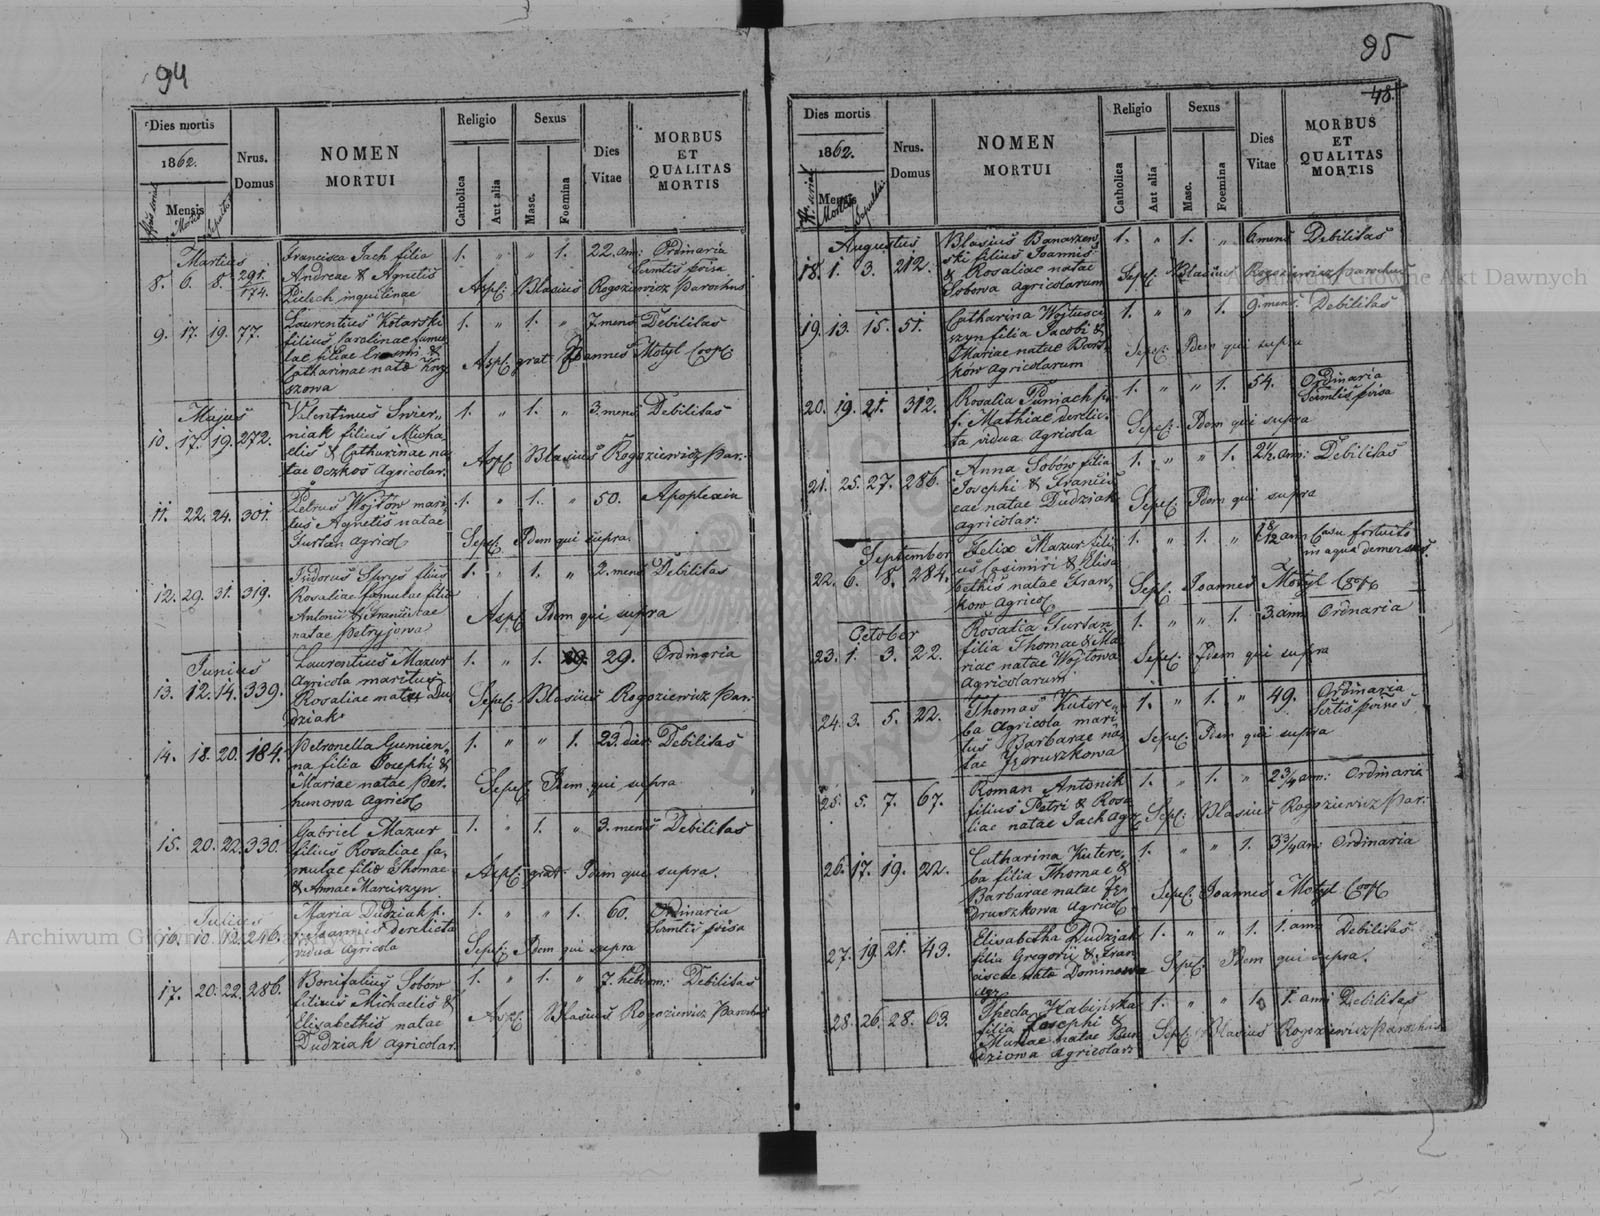 94
Dies mortis
1862.
Mensis
Nrus. Domus
NOMEN MORTUI
Religio
Catholica
Aut alia
Sexus
Masc.
Foemina
Dies Vitae
MORBUS ET QUALITAS MORTIS
Martius
8. 6. 8. 291./174. Francisca Jach filia 1. „ „ 1. 22. ann: Ordinaria
Andreae & Agnetis
Pielech inquilinae
Blasius Rogoziewicz Parochus
9. 17. 19. 77. Laurentius Kotarski 1. „ 1. „ 7. mens Debilitas
filius Carolinae famu
lae filiae &
Catharinae natae
szowa
grat Joannes Motyl Coop
Majus
10. 17. 19. 272. Valentinus Swier„ 1. „ 1. „ 3. mens Debilitas
niak filius Micha
elis & Catharinae na
tae Oczkos Agricolar.
Blasius Rogoziewicz Par.
11. 22. 24. 301. Petrus Wojtów mari„ 1. „ 1. „ 50. Apoplexia
tus Agnetis natae
Furtan Agricol
Sepel. Idem qui supra.
12. 29. 31. 319. Isidorus Spryś filius 1. „ 1. „ 2. mens Debilitas
Rosaliae famulae filiae
Antonii & Franciscae
natae Petryjowa
Idem qui supra
Junius
13. 12. 14. 339. Laurentius Mazur 1. „ 1. 29. Ordinaria
Agricola maritus
Rosaliae natae Du
dziak
Sepel. Blasius Rogoziewicz Par.
14. 18. 20. 184. Petronella Gumien„ 1. „ „ 1. 23. dies Debilitas
na filia Josephi &
Mariae natae Per.
hunowa Agricol
Sepel. Idem qui supra
15. 20. 22. 330. Gabriel Mazur 1. „ 1. „ 3. mens Debilitas
filius Rosaliae fa„
mulae filiae Thomae
& Annae Marciszyn
grat. Idem qui supra.
Julius
16. 10. 12. 246. Maria Dudziak p. 1. „ „ 1. 60. Ordinaria
f. Joannis derelicta
vidua Agricola
Sepel: Idem qui supra
17. 20. 22. 286. Bonifatius Sobów 1. „ 1. „ 7. hebdom: Debilitas
filius Michaelis &
Elisabethis natae
Dudziak Agricolar.
Blasius Rogoziewicz Parochus
95
48.
Dies mortis
1862.
Mensis
Nrus. Domus
NOMEN MORTUI
Religio
Catholica
Aut alia
Sexus
Masc.
Foemina
Dies Vitae
MORBUS ET QUALITAS MORTIS
Augustus
18. 1. 3. 212. Blasius Banaszew„ 1. „ 1. „ 6 mens Debilitas
ski filius Joannis
& Rosaliae natae
Sobowa Agricolarum
Sepel. Blasius Rogoziewicz Parochus
19. 13. 15. 51. Catharina Wojtusci 1. „ „ 1. 9. mens. Debilitas
szyn filia Jacobi &
Mariae natae
kow Agricolarum
Sepel: Idem qui supra
20. 19. 21. 312. Rosalia Puniach p. 1. „ „ 1. 54. Ordinaria
f. Mathiae derelic„
ta vidua Agricola
Sepel: Idem qui supra
21. 25. 27. 286. Anna Sobów filia 1. „ „ 1. 2½. ann: Debilitas
Josephi & Francis
cae natae Dudziak
Agricolar:
Sepel: Idem qui supra
September
22. 6. 8. 284. Felix Mazur fili„ 1. „ 1. „ ann Casu fortuito
us Casimiri & Elisa in aqua demersus.
bethis natae Fran„
kow Agricol
Sepel: Joannes Motyl Coop
October
23. 1. 3. 22. Rosalia Furtan 1. „ „ 1. 3. ann Ordnaria
filia Thomae & Ma
riae natae Wojtowa
Agricolarum
Sepel: Idem qui supra
24. 3. 5. 22. Thomas Kutere„ 1. „ 1. „ 49. Ordinaria
ba Agricola mari
tus Barbarae na
tae
Sepel: Idem qui supra
25. 5. 7. 67. Roman Antonik 1. „ 1. „ 2¾ ann: Ordinaria
filius Petri & Rosa
liae natae Jach Agr
Sepel: Blasius Rogoziewicz Par:
26. 17. 19. 22. Catharina Kutere„ 1. „ „ 1. 3¾ an: Ordinaria
ba filia Thomae &
Barbarae natae
druszkowa Agricol
Sepel. Joannes Motyl Coop
27. 19. 21. 43. Elisabetha Dudziak 1. „ „ 1. 1. ann Debilitas
filia Gregorii & Fran
ciscae natae Dominowa
Agr.
Sepel: Idem qui supra.
28. 26. 28. 63. Thecla 1. „ „ 1. 1. anni Debilitas
filia Josephi &
Mariae natae
dziowa Agricolarz
Sepel: Blasius Rogoziewicz Parochus
Archiwum Główne Akt Dawnych
Archiwum Główne Akt Dawnych